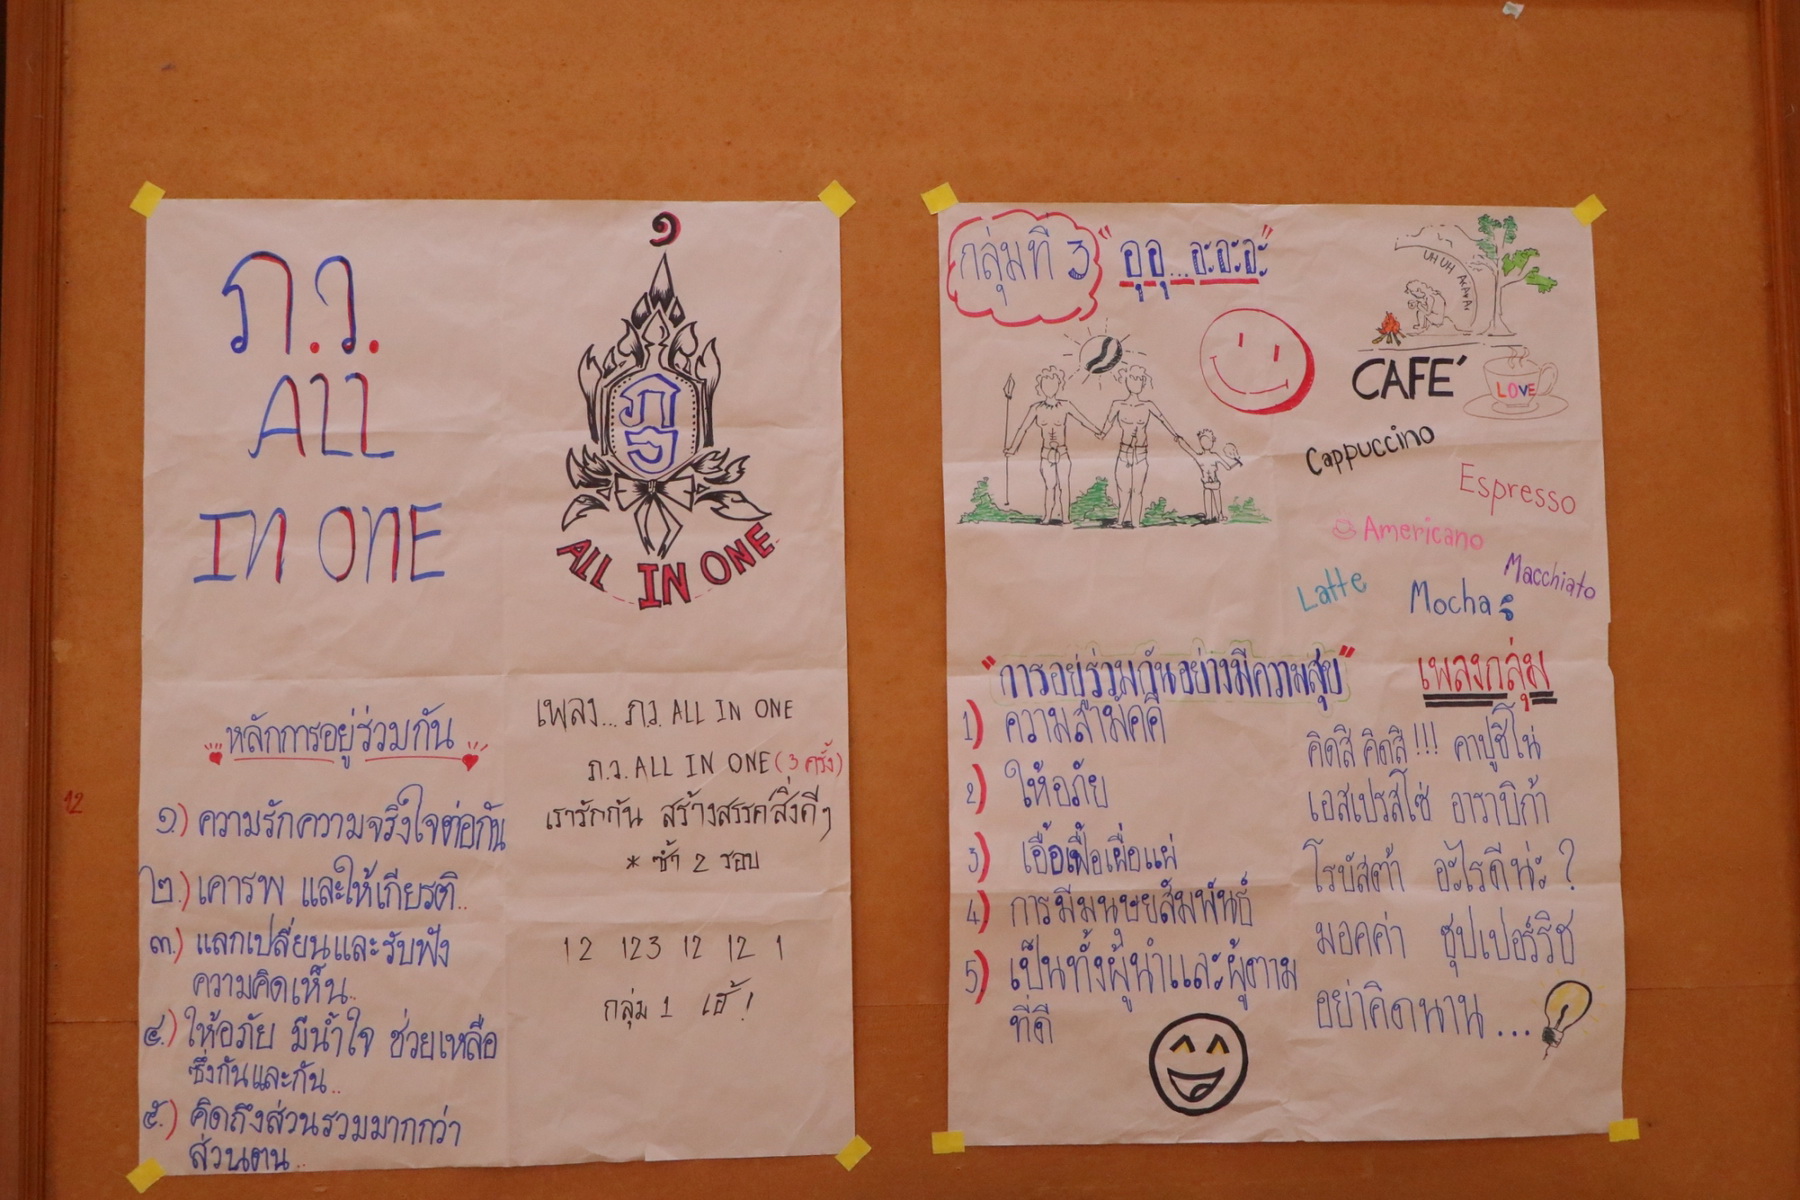 ภ.ว.
ALL
IN ONE
๑
ภ
ว
ALL IN ONE
หลักการอยู่ร่วมกัน
๑.) ความรักความจริงใจต่อกัน
๒.) เคารพ และให้เกียรติ..
๓.) แลกเปลี่ยนและรับฟัง
ความคิดเห็น..
๔.) ให้อภัย มีน้ำใจ ช่วยเหลือ
ซึ่งกันและกัน..
๕.) คิดถึงส่วนรวมมากกว่า
ส่วนตน..
เพลง... ภว. ALL IN ONE
ภ.ว. ALL IN ONE (3 ครั้ง)
เรารักกัน สร้างสรรค์สิ่งดีๆ
* ซ้ำ 2 รอบ
12 123 12 12 1
กลุ่ม 1 เฮ้!
12
กลุ่มที่ 3 "อุอุ...อะอะอะ"
UH UH AHAHAH
CAFE'
LOVE
Cappuccino
Espresso
Americano
Macchiato
Latte
Mocha
"การอยู่ร่วมกันอย่างมีความสุข"
1) ความสามัคคี
2) ให้อภัย
3) เอื้อเฟื้อเผื่อแผ่
4) การมีมนุษยสัมพันธ์
5) เป็นทั้งผู้นำและผู้ตาม
ที่ดี
เพลงกลุ่ม
คิดสิ คิดสิ!!! คาปูชิโน่
เอสเปรสโซ่ อาราบิก้า
โรบัสต้า อะไรดีน่ะ?
มอคค่า ซุปเปอร์ริช
อย่าคิดนาน...